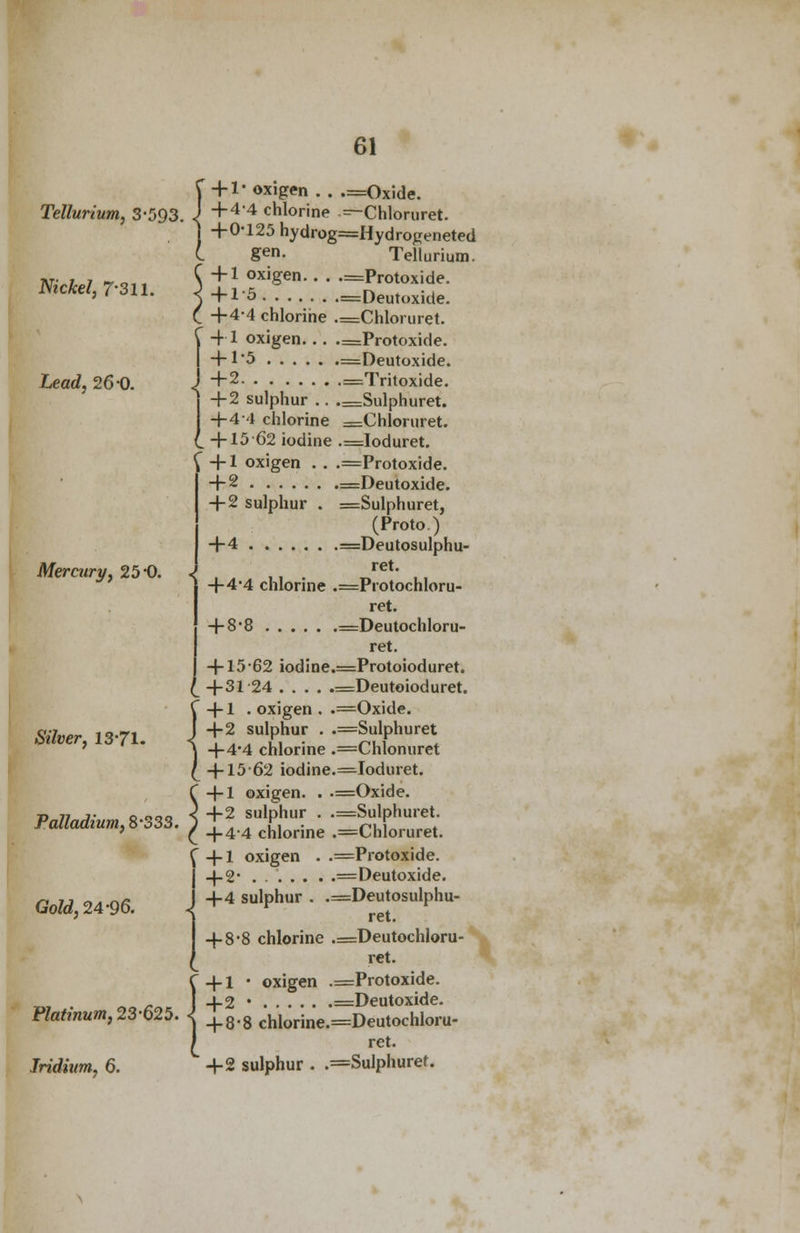 61
+1· oxigen . . .=Oxide.
Tellurium, 3·593. +4·4 chlorine .=Chloruret.
+0·125 hydrog=Hydrogeneted
gen. Tellurium.
+1 oxigen. . . .=Protoxide.
Nickel, 7·311. +1·5 . . . . . . .=Deutoxide.
+4·4 chlorine .=Chloruret.
+1 oxigen. . . .=Protoxide.
+1·5 . . . . . .=Deutoxide.
Lead, 26·0. +2. . . . . . . .=Tritoxide.
+2 sulphur . . .=Sulphuret.
+4·4 chlorine =Chloruret.
+15·62 iodine .=Ioduret.
+1 oxigen . . .=Protoxide.
+2 . . . . . . .=Deutoxide.
+2 sulphur . =Sulphuret,
(Proto.)
+4 . . . . . . .=Deutosulphu-
Mercury, 25·0. ret.
+4·4 chlorine .=Protochloru-
ret.
+8·8 . . . . . .=Deutochloru-
ret.
+15·62 iodine.=Protoioduret.
+31·24 . . . . .=Deutoioduret.
+1 . oxigen . .=Oxide.
Silver, 13·71. +2 sulphur . .=Sulphuret
+4·4 chlorine .=Chlonuret
+15·62 iodine.=Ioduret.
+1 oxigen. . .=Oxide.
Palladium, 8·333. +2 sulphur . .=Sulphuret.
+4·4 chlorine .=Chloruret.
+1 oxigen . .=Protoxide.
+2· . . . . . . .=Deutoxide.
Gold, 24·96. +4 sulphur . .=Deutosulphu-
ret.
+8·8 chlorine .=Deutochloru-
ret.
+1 · oxigen .=Protoxide.
Platinum, 23·625. +2 · . . . . . .=Deutoxide.
+8·8 chlorine.=Deutochloru-
ret.
Iridium, 6. +2 sulphur . .=Sulphuret.